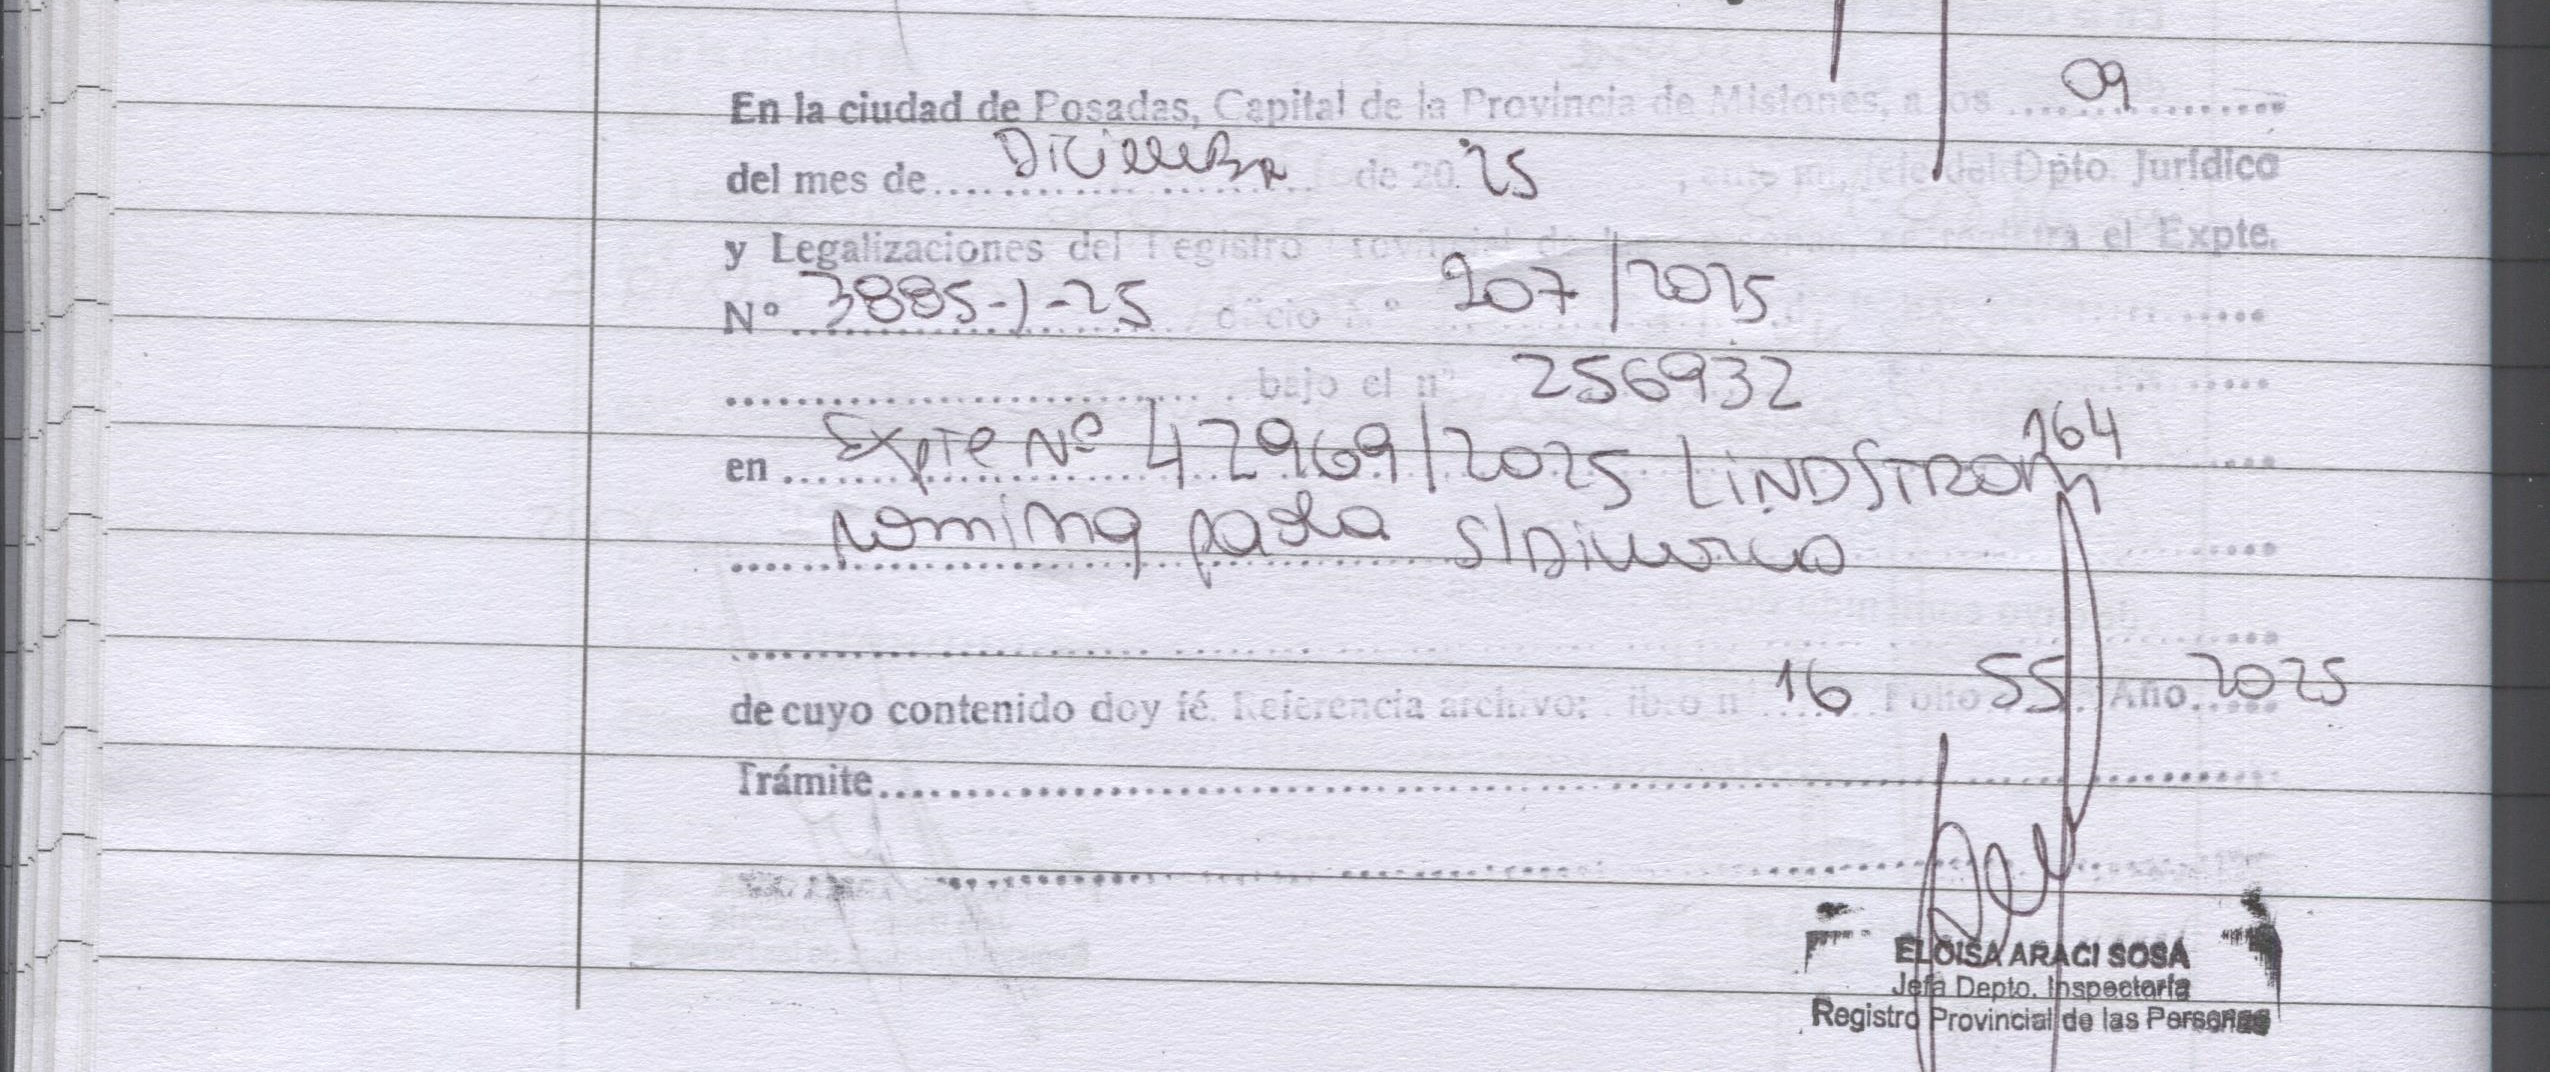 En la ciudad de Posadas, Capital de la Provincia de Misiones, a los 09
del mes de Diciembre de 20 25, ante mí, Jefe del Dpto. Jurídico
y Legalizaciones del Registro Provincial de las el Expte.
Nº 3885-J-25 oficio n.º 207/2025
bajo el nº 256932
164
en Expte Nº 42969/2025 LINDSTROM
romina paola S/Divorcio
de cuyo contenido doy fé. Referencia archivo: libro nº 16 Folio 55 Año 2025
Trámite
ELOISA ARACI SOSA
Jefa Depto. Inspectoría
Registro Provincial de las Personas